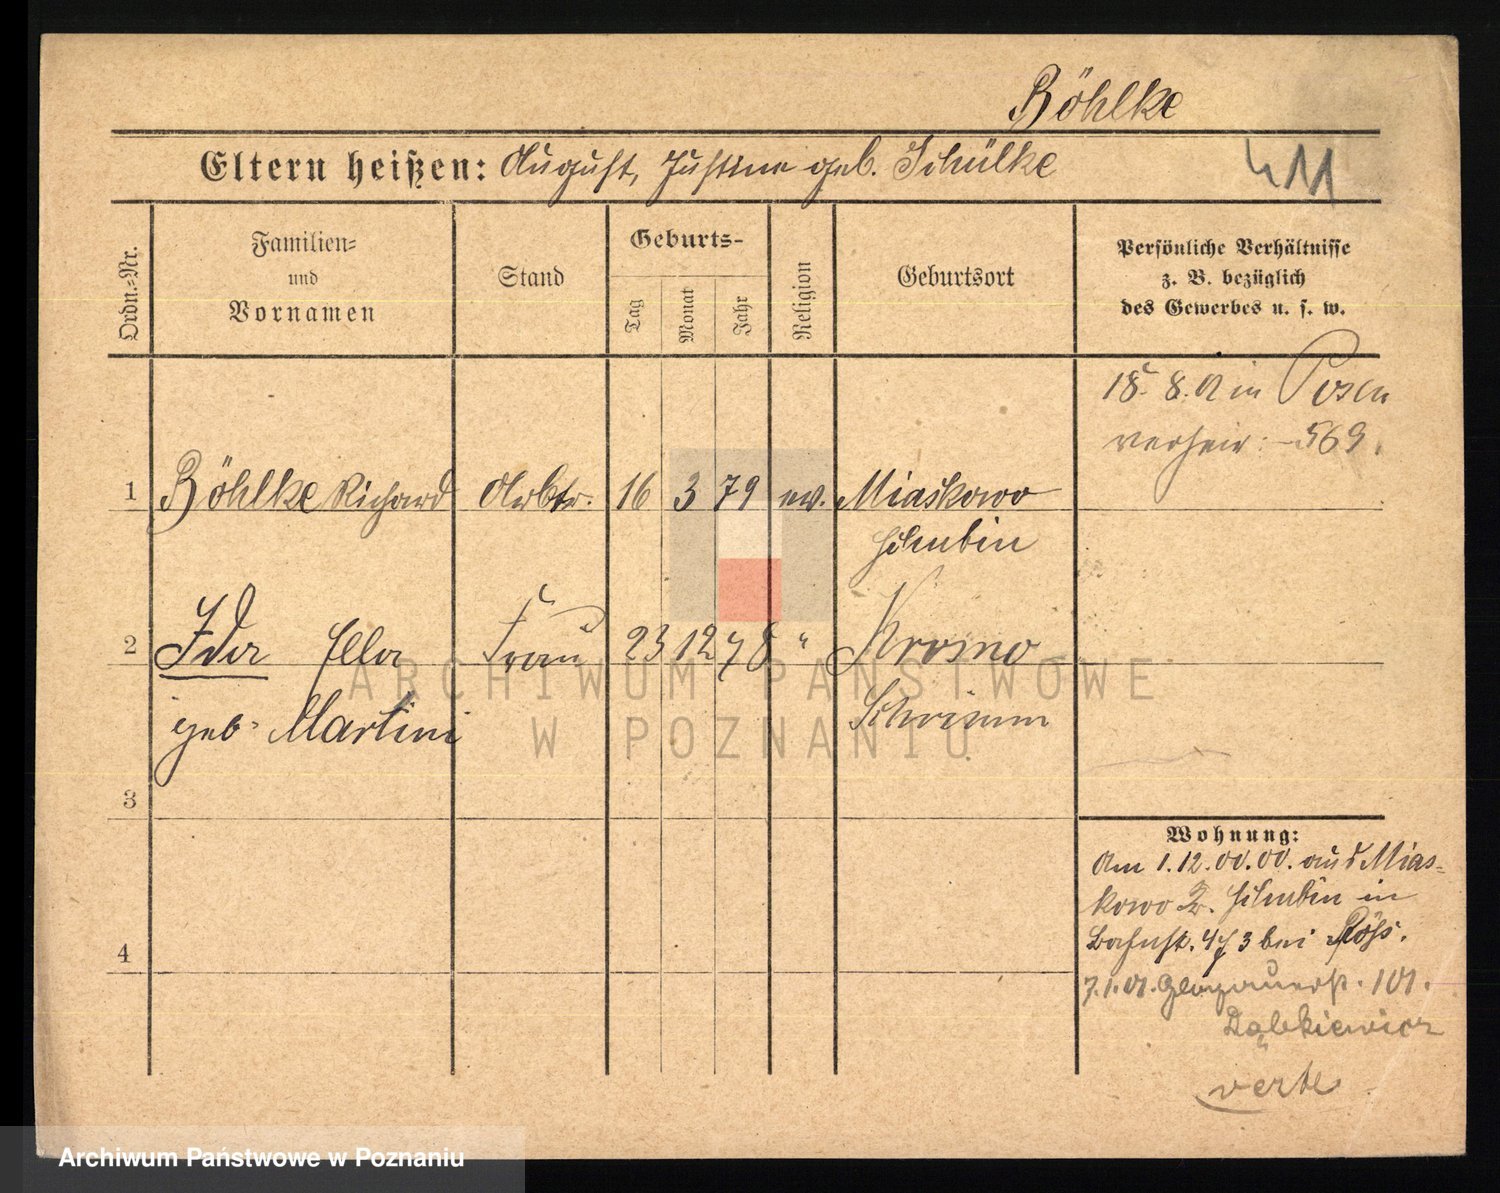 Böhlke
Eltern heißen: August, Justine geb. Schülke
411
Ordn.-Nr.
Familien- und Vornamen
Stand
Geburts-
Tag
Monat
Jahr
Religion
Geburtsort
Persönliche Verhältnisse
z. B. bezüglich
des Gewerbes u. s. w.
18. 8. 01 in Posen
verheir: - 569.
1 Böhlke Richard Arbtr. 16 3 79 ev. Miaskowo
Schubin
2 Ida Ella Frau 23 12 78 " Krosno
geb. Martini Schrimm
3
4
Wohnung:
Am 1.12.00.00. aus Mias-
kowo Kr. Schubin in
Bahnst. 47 3 bei Röhs.
7.1.01. Glogauerst. 101.
Dąbkiewicz
verte
ARCHIWUM PAŃSTWOWE
W POZNANIU
Archiwum Państwowe w Poznaniu